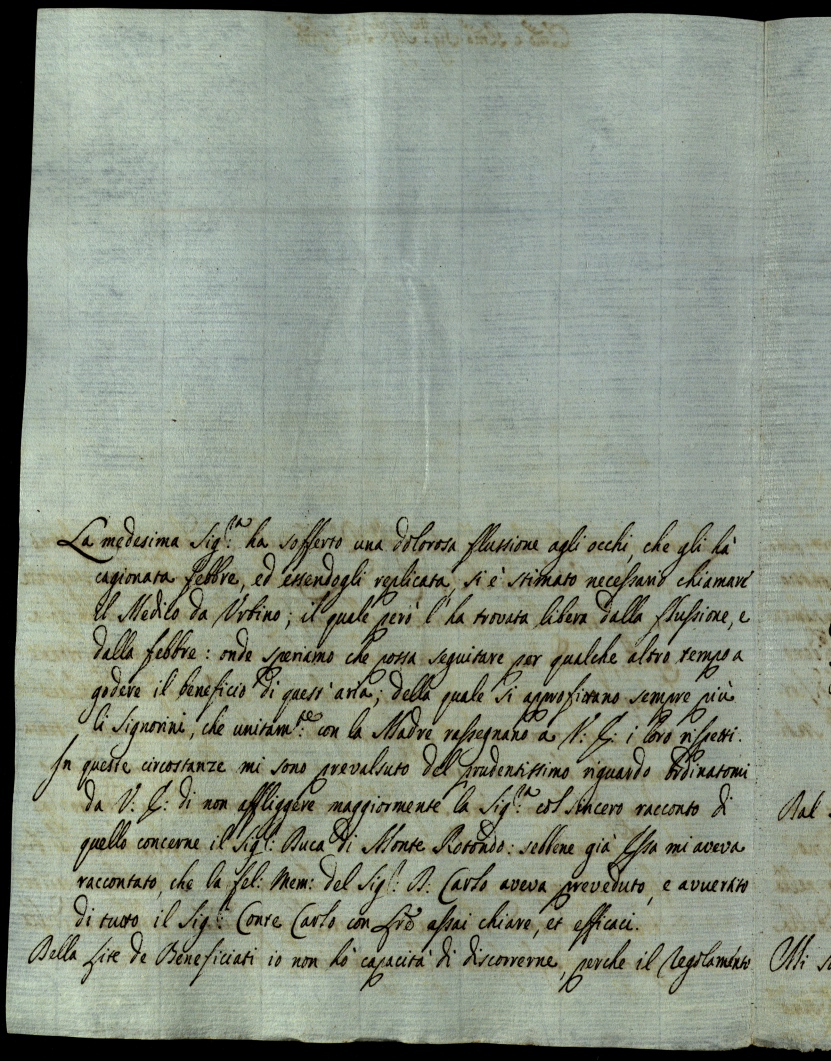 La medesima Sig.ra ha sofferto una dolorosa flussione agli occhi, che gli hà
cagionata febbre, ed essendogli replicata, si è stimato necessario chiamare
il Medico da Urbino; il quale però l'ha trovata libera dalla flussione, e
dalla febbre: onde speriamo che possa seguitare per qualche altro tempo a
godere il beneficio di quest'aria; della quale si approfittano sempre più
li Signorini, che unitam.te con la Madre rassegnano a V: E: i loro rispetti.
In queste circostanze mi sono prevalsuto del prudentissimo riguardo ordinatomi
da V: E: di non affliggere maggiormente la Sig.ra col sincero racconto di
quello concerne il Sig.r Duca di Monte Rotondo: sebbene già Essa mi aveva
raccontato, che la fel: Mem: del Sig.r D: Carlo aveva preveduto, e avvertito
di tutto il Sig.r Conte Carlo con Lre assai chiare, et efficaci.
Della Lite de Beneficiati io non hò capacità di discorrerne, perche il Regolamento
Dal
Mi